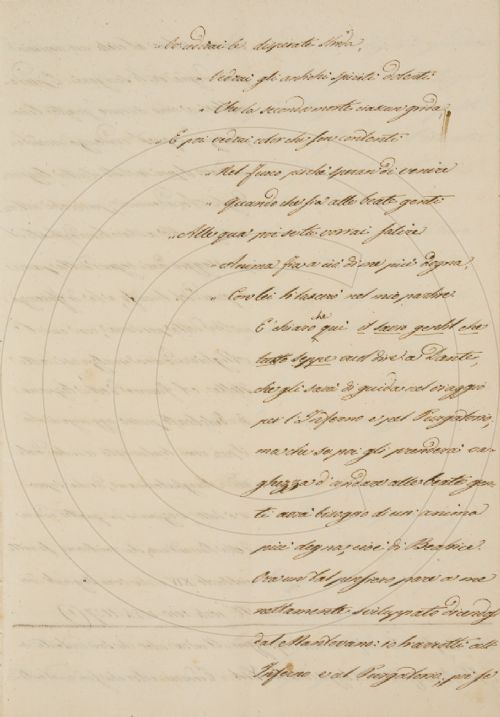 „ Ove udirai le disperate strida,
„ Vedrai gli antichi spiriti dolenti
„ Che la seconda morte ciascun grida;
„ E poi vedrai color che son contenti
„ Nel fuoco perchè speran di venire
„ Quando che sia alle beate genti
„ Alle qua' poi se tu vorrai salire
„ Anima fia a ciò di me più degna;
„ Con lei ti lascerò nel mio partire.
È chiaro che qui il savio gentil che
tutto seppe vuol dire a Dante,
che gli sarà di guida nel viaggio
per l'Inferno e pel Purgatorio,
ma che se poi gli prenderà va-
ghezza d'andare alle beate gen-
ti avrà bisogno di un'anima
più degna, cioè di Beatrice.
Ora un tal pensiero pare a me
nettamente sviluppato dicendosi
dal Mantovano: io trarrotti all'
Inferno e al Purgatorio, poi se